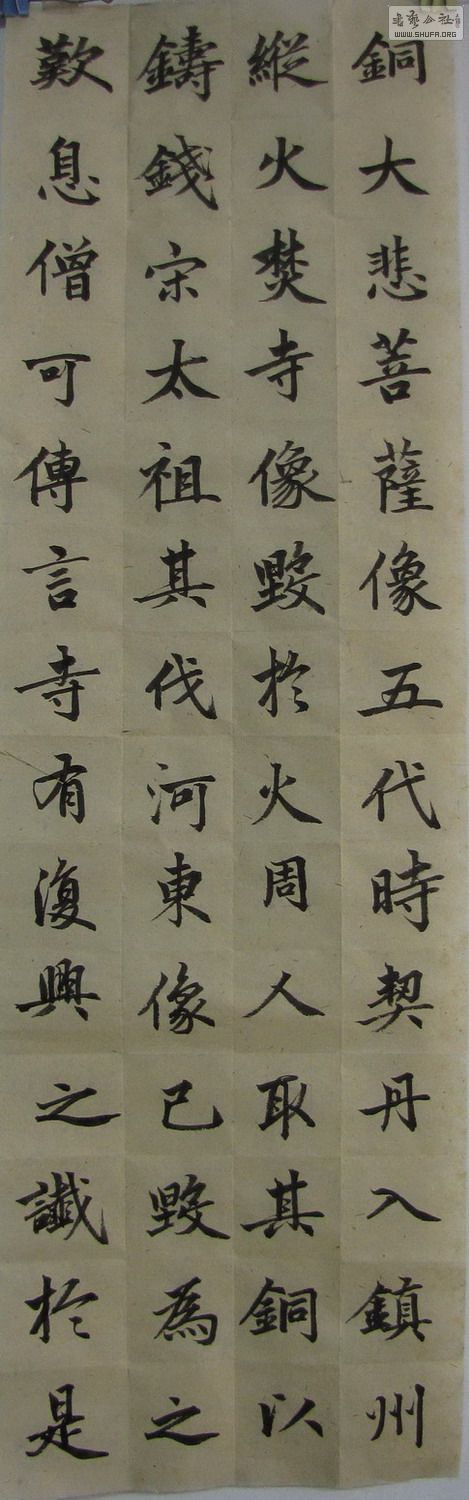 銅大悲菩薩像五代時契丹入鎮州
縱火焚寺像毀於火周人取其銅以
鑄錢宋太祖其伐河東像已毀為之
歎息僧可傳言寺有復興之讖於是
書藝公社
WWW.SHUFA.ORG